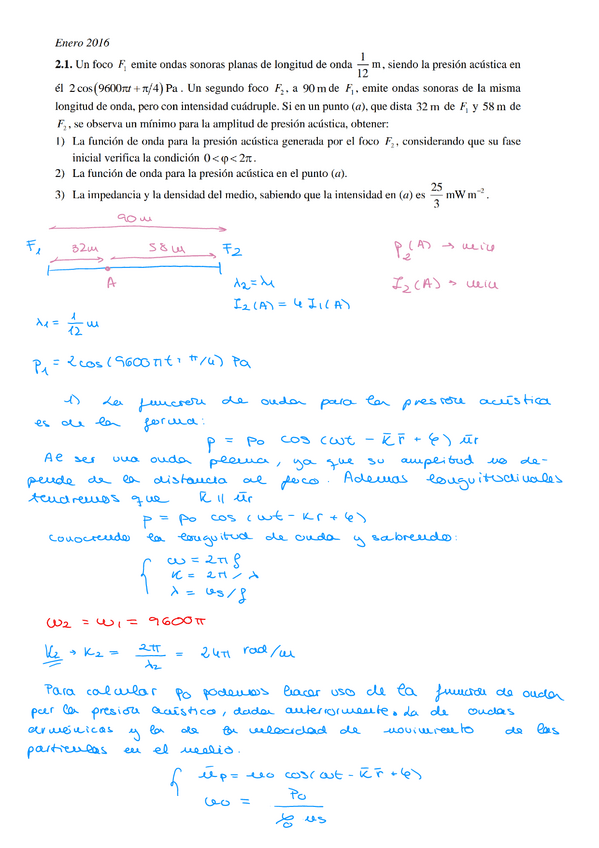 Enero 2016
2.1. Un foco F₁ emite ondas sonoras planas de longitud de onda 1/12 m, siendo la presión acústica en
él 2 cos(9600πt + π/4) Pa. Un segundo foco F₂, a 90 m de F₁, emite ondas sonoras de la misma
longitud de onda, pero con intensidad cuádruple. Si en un punto (a), que dista 32 m de F₁ y 58 m de
F₂, se observa un mínimo para la amplitud de presión acústica, obtener:
1) La función de onda para la presión acústica generada por el foco F₂, considerando que su fase
inicial verifica la condición 0 < φ < 2π.
2) La función de onda para la presión acústica en el punto (a).
3) La impedancia y la densidad del medio, sabiendo que la intensidad en (a) es 25/3 mW m⁻².
90 m
F₁ 32m 58 m F₂
A
P₂(A) → min
I₂(A) → min
λ₂ = λ₁
I₂(A) = 4 I₁(A)
λ₁ = 1/12 m
P₁ = 2cos(9600πt + π/4) Pa
1) La función de onda para la presión acústica
es de la forma:
p = p₀ cos (ωt - k̄ r̄ + φ) ūr
Al ser una onda plana, ya que su amplitud no de-
pende de la distancia al foco. Ademas longuitudinales
tendremos que k̄ ∥ ūr
p = p₀ cos (ωt - kr + φ)
conociendo la longuitud de onda y sabiendo:
{ ω = 2π f
k = 2π / λ
λ = vs/f
ω₂ = ω₁ = 9600π
k₂ → k₂ = 2π/λ₂ = 24π rad/m
Para calcular p₀ podemos hacer uso de la función de onda
par la presión acústica, dada anteriormente. La de ondas
armónicas y la de la velocidad de movimiento de las
partículas en el medio.
{ ūp = u₀ cos(ωt - k̄ r̄ + φ)
u₀ = P₀ / ρ₀ vs